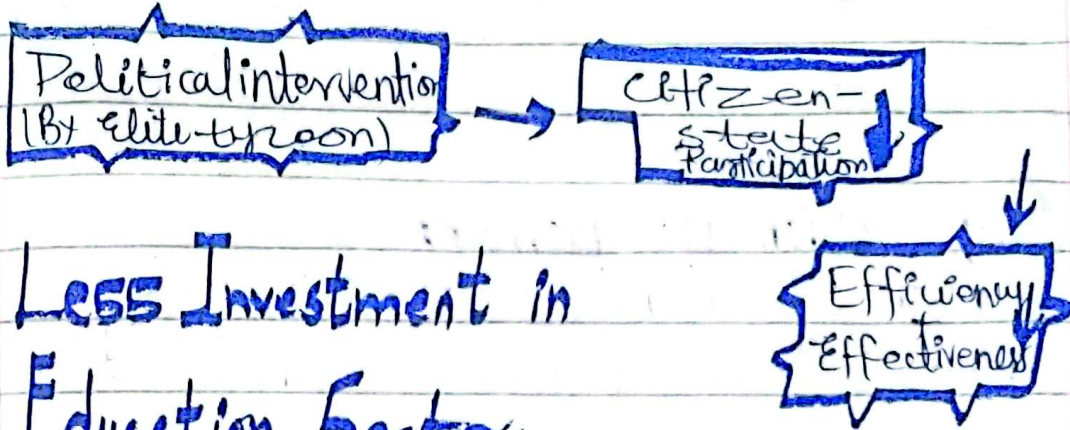 Political intervention
(By Elite tycoon)
Citizen-
state
Participation
Efficiency
Effectiveness
Less Investment in
Education Sector